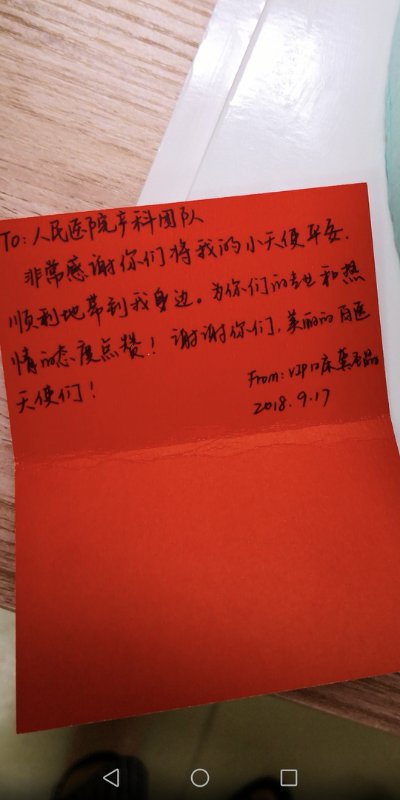 TO: 人民医院产科团队
非常感谢你们将我的小天使平安、
顺利地带到我身边。为你们的专业和热
情的态度点赞！谢谢你们，美丽的白医
天使们！
From: VIP12床
2018.9.17